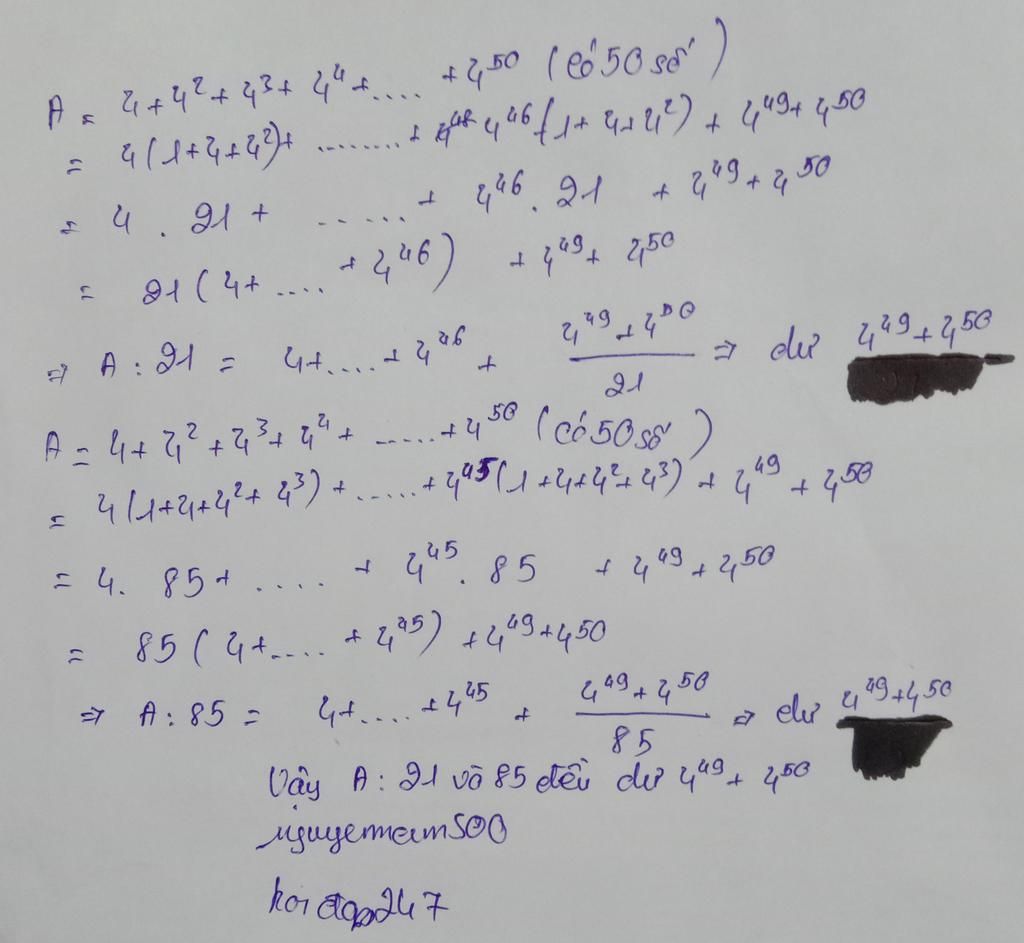 A = 4 + 4² + 4³ + 4⁴ + .... + 4⁵⁰ (Có 50 số)
= 4(1+4+4²)+ ........ + 4⁴⁶(1+4+4²) + 4⁴⁹ + 4⁵⁰
= 4 . 21 + ...... + 4⁴⁶ . 21 + 4⁴⁹ + 4⁵⁰
= 21(4+ .... + 4⁴⁶) + 4⁴⁹ + 4⁵⁰
⇒ A : 21 = 4+....+4⁴⁶ + (4⁴⁹ + 4⁵⁰)/21 ⇒ dư 4⁴⁹ + 4⁵⁰
A = 4 + 4² + 4³ + 4⁴ + ...... + 4⁵⁰ (Có 50 số)
= 4(1+4+4²+4³) + ...... + 4⁴⁵(1+4+4²+4³) + 4⁴⁹ + 4⁵⁰
= 4. 85 + .... + 4⁴⁵ . 85 + 4⁴⁹ + 4⁵⁰
= 85(4+.... + 4⁴⁵) + 4⁴⁹ + 4⁵⁰
⇒ A : 85 = 4+....+4⁴⁵ + (4⁴⁹ + 4⁵⁰)/85 ⇒ dư 4⁴⁹+4⁵⁰
Vậy A : 21 và 85 đều dư 4⁴⁹ + 4⁵⁰
hoidap247